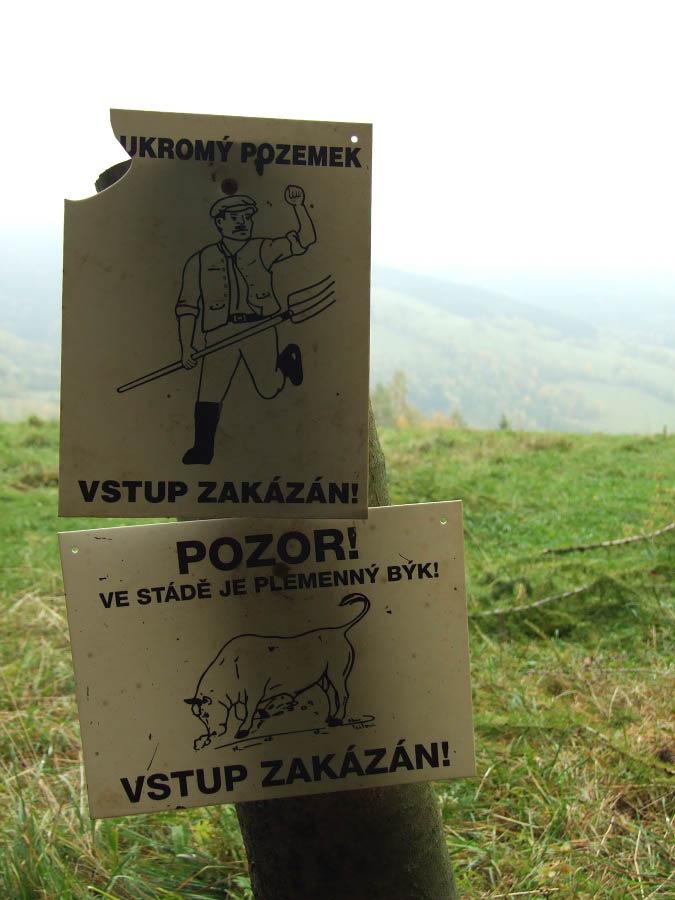 UKROMÝ POZEMEK
VSTUP ZAKÁZÁN!
POZOR!
VE STÁDĚ JE PLEMENNÝ BÝK!
VSTUP ZAKÁZÁN!